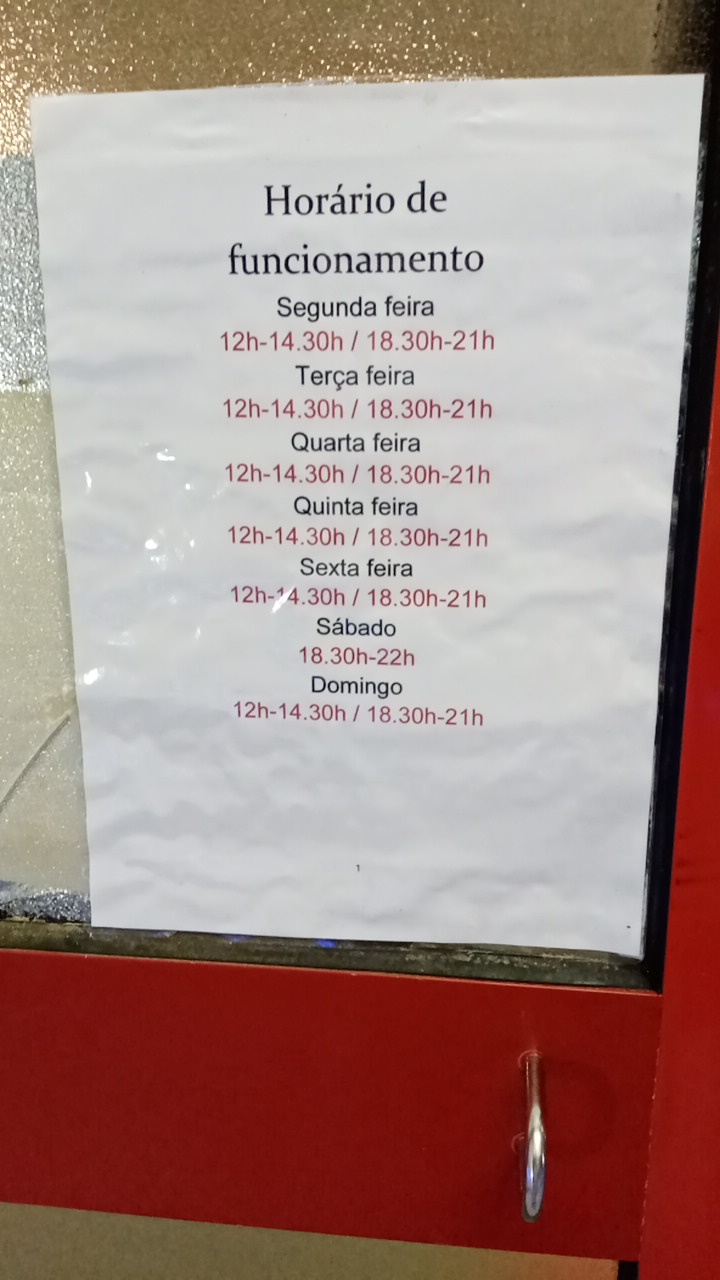 Horário de
funcionamento
Segunda feira
12h-14.30h / 18.30h-21h
Terça feira
12h-14.30h / 18.30h-21h
Quarta feira
12h-14.30h / 18.30h-21h
Quinta feira
12h-14.30h / 18.30h-21h
Sexta feira
12h-14.30h / 18.30h-21h
Sábado
18.30h-22h
Domingo
12h-14.30h / 18.30h-21h
1